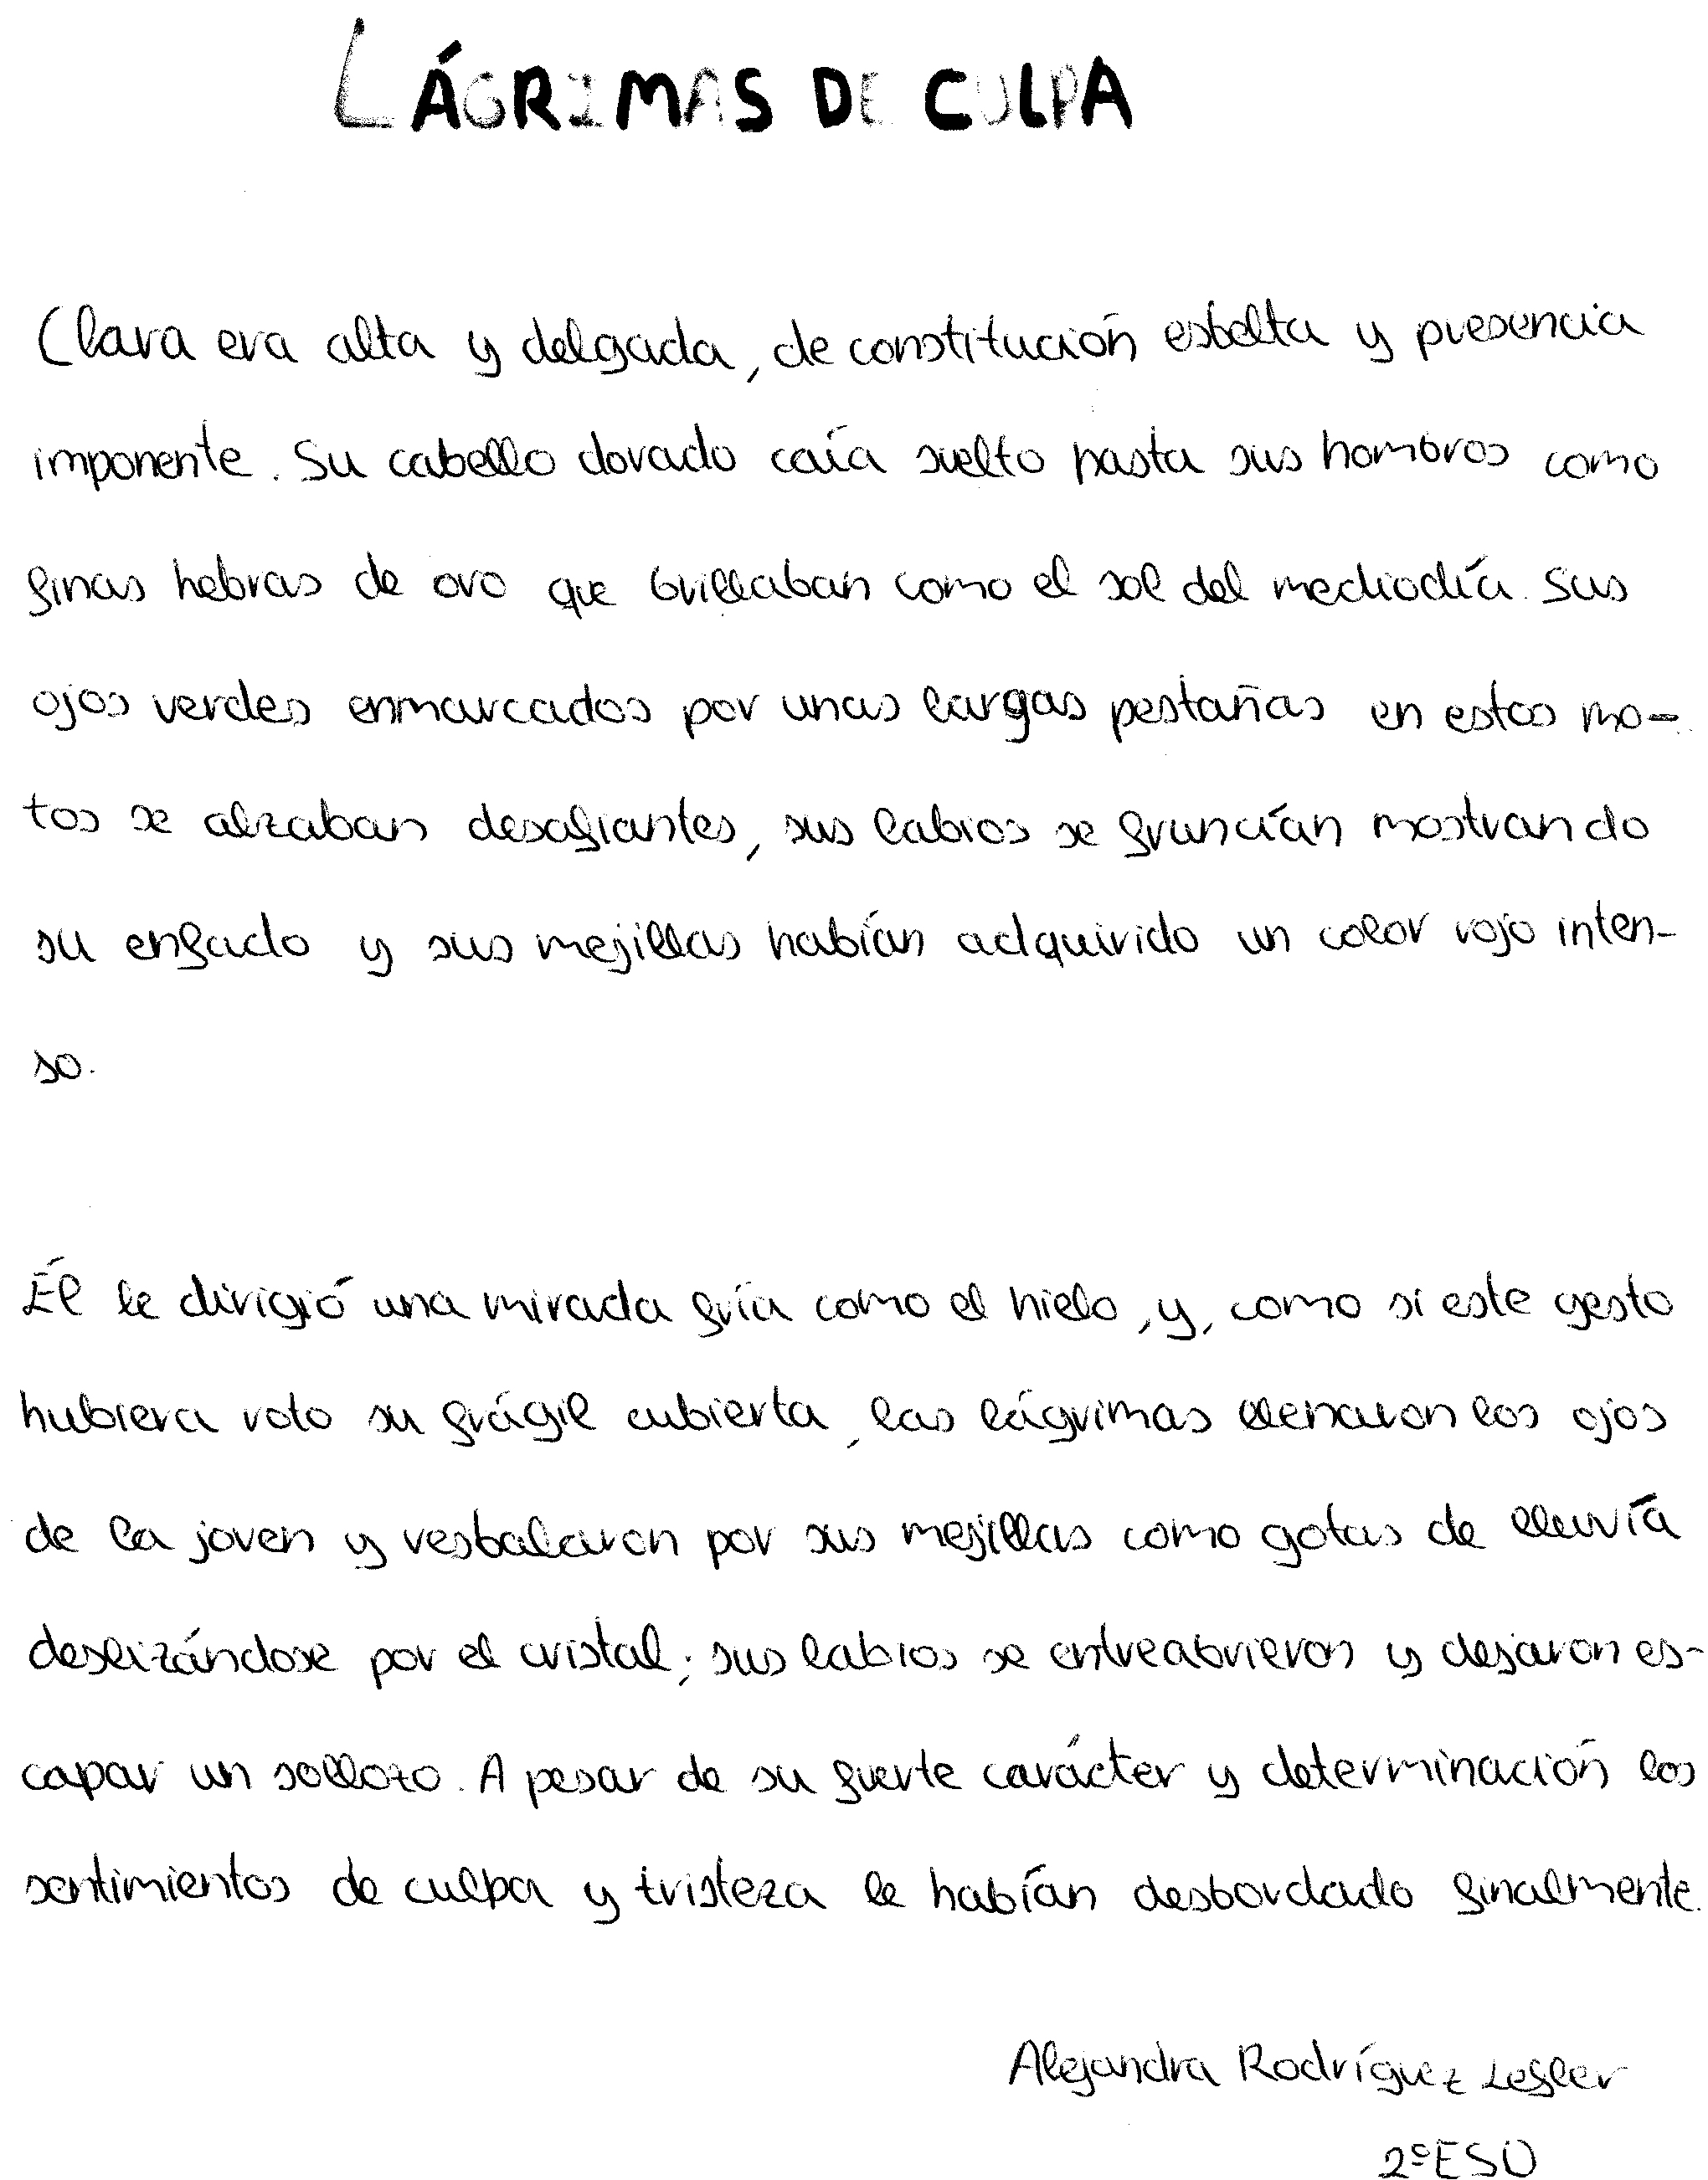 LÁGRIMAS DE CULPA
Clara era alta y delgada, de constitución esbelta y presencia
imponente. Su cabello dorado caía suelto hasta sus hombros como
finas hebras de oro que brillaban como el sol del mediodía. Sus
ojos verdes enmarcados por unas largas pestañas en estos mo-
tos se alzaban desafiantes, sus labios se fruncían mostrando
su enfado y sus mejillas habían adquirido un color rojo inten-
so.
Él le dirigió una mirada fría como el hielo, y, como si este gesto
hubiera roto su frágil cubierta, las lágrimas llenaron los ojos
de la joven y resbalaron por sus mejillas como gotas de lluvia
deslizándose por el cristal; sus labios se entreabrieron y dejaron es-
capar un sollozo. A pesar de su fuerte carácter y determinación los
sentimientos de culpa y tristeza le habían desbordado finalmente.
Alejandra Rodríguez Lesler
2º ESO